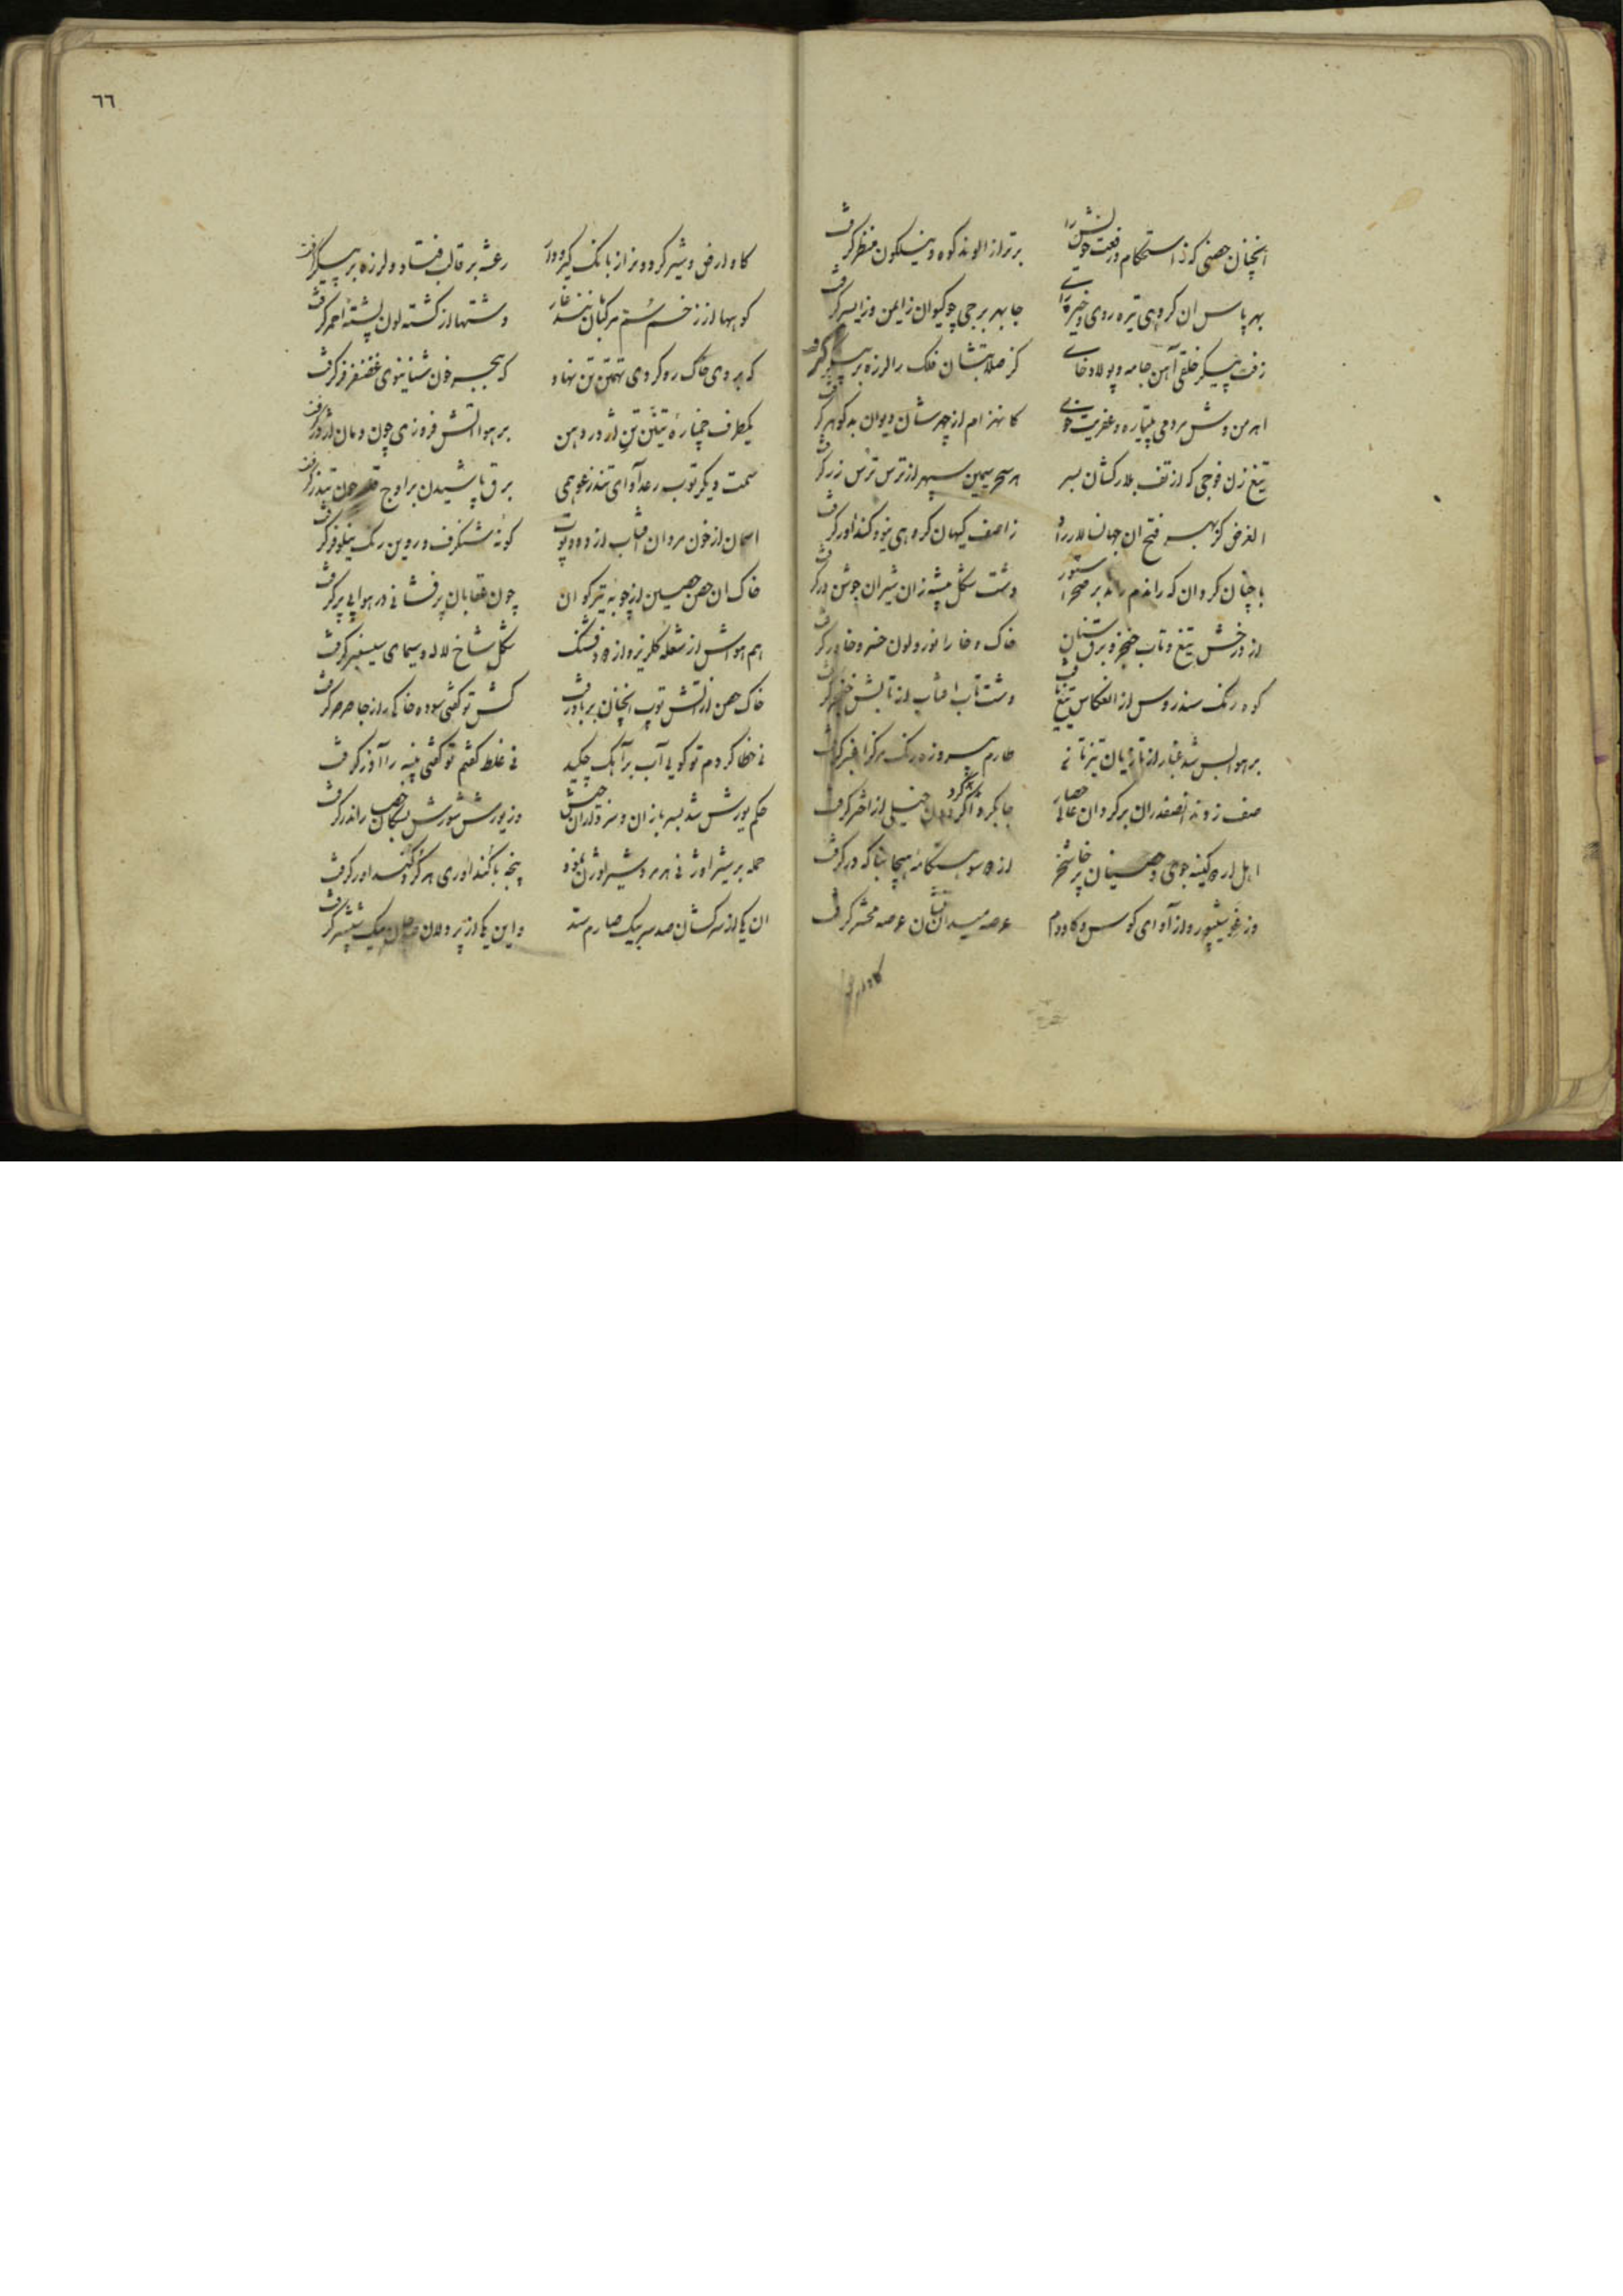 انچنان حصنی کز استحکام و رفعت خویش را برتر از الوند کوه و نیلگون منظر کرفت
بهر پاس ان کروهی تیره روی و خیره رای جا بهر برجی چو کیوان ز ایمن و ز ایسر کرفت
زفت پیکر خلقی آهن جامه و پولاد خای کز صلابتشان فلک را لرزه بر پیکر کرفت
اهرمن وش مردمی پتیاره و عفریت خوی کانهزام از چهرشان دیوان بد کوهر کرفت
تیغ زن فوجی که از تف بلارکشان بسر هر سحر سیمین سپهر از ترس ترس زر کرفت
الغرض کز بهر فتح ان جهانسالار راد ز اصف کیهان کروهی نیو کنداور کرفت
با چنان کردان که راندم راند بر صحرا ستور دشت شکل بیشه زان شیران جوشن در کرفت
از درخش تیغ و تاب خنجر و برق سنان خاک و خارا نور و لون خسرو خاور کرفت
کوه رنک سندروس از انعکاس تیغ یافت دشت تاب افتاب از تابش خنجر کرفت
بر هوا بس شد غبار از تازیان تیزتاز طارم پیروزه رنک مرکز اغبر کرفت
صف زدند انصفدران بر کرد ان عالی حصار جا بکرد خیلی از اختر کرفت
اهل ارک کینه جوی و حصنیان پرخاشخر از سو هنکامه هیجا بنا که در کرفت
وز غو شیپور و از آوای کوس و کاودم عرصه میدانشان عرصه محشر کرفت
کاو ارض
٦٦
کاو ارض و شیر کردون از بانک کیر و دار رعشه بر قالب فتاد و لرزه بر پیکر کرفت
کوهها از زخم سم مرکبان شد غار دشتها از کشته لون پشته احمر کرفت
که بروی خاک رو کردی تهمتن تن نهاد که ببحر خون شنا نیوی غضنفر فر کرفت
یکطرف خمپاره تنین تن اژدر دهن بر هوا اتش فروزی چون دمان اژدر کرفت
سمت دیکر توپ رعد آوای تندر غو همی برق پاشیدن بر اوج چون تندر کرفت
اسمان از خون مردان افتاب از دود توپ کونه شنکرف و روین رنک نیلوفر کرفت
خاک ان حصن حصین از چوبه تیر کوان چون عقابان پرفشانی در هوایی پر کرفت
هم هواش از شعله کلریز و از دود فشنک شکل شاخ لاله و سیمای سیسنبر کرفت
خاک حصن از اتش توپ انچنان بر باد رفت کش تو کفتی سوده خاکی از جا صرصر کرفت
نی خطا کردم تو کویی آب بر آهک چکید نی غلط کفتم تو کفتی پنبه را آذر کرفت
حکم یورش شد بسربازان و سرداران جیش وز یورش شورش بسکان حصار اندر کرفت
حمله بر شیر اوژنی هر مرد شیر اوژن نمود پنجه با کنداوری هر کرد کنداور کرفت
ان یکی از سرکشان صد سر بیک صارم ستد و این یکی از پردلان صد جان بیک شش پر کرفت